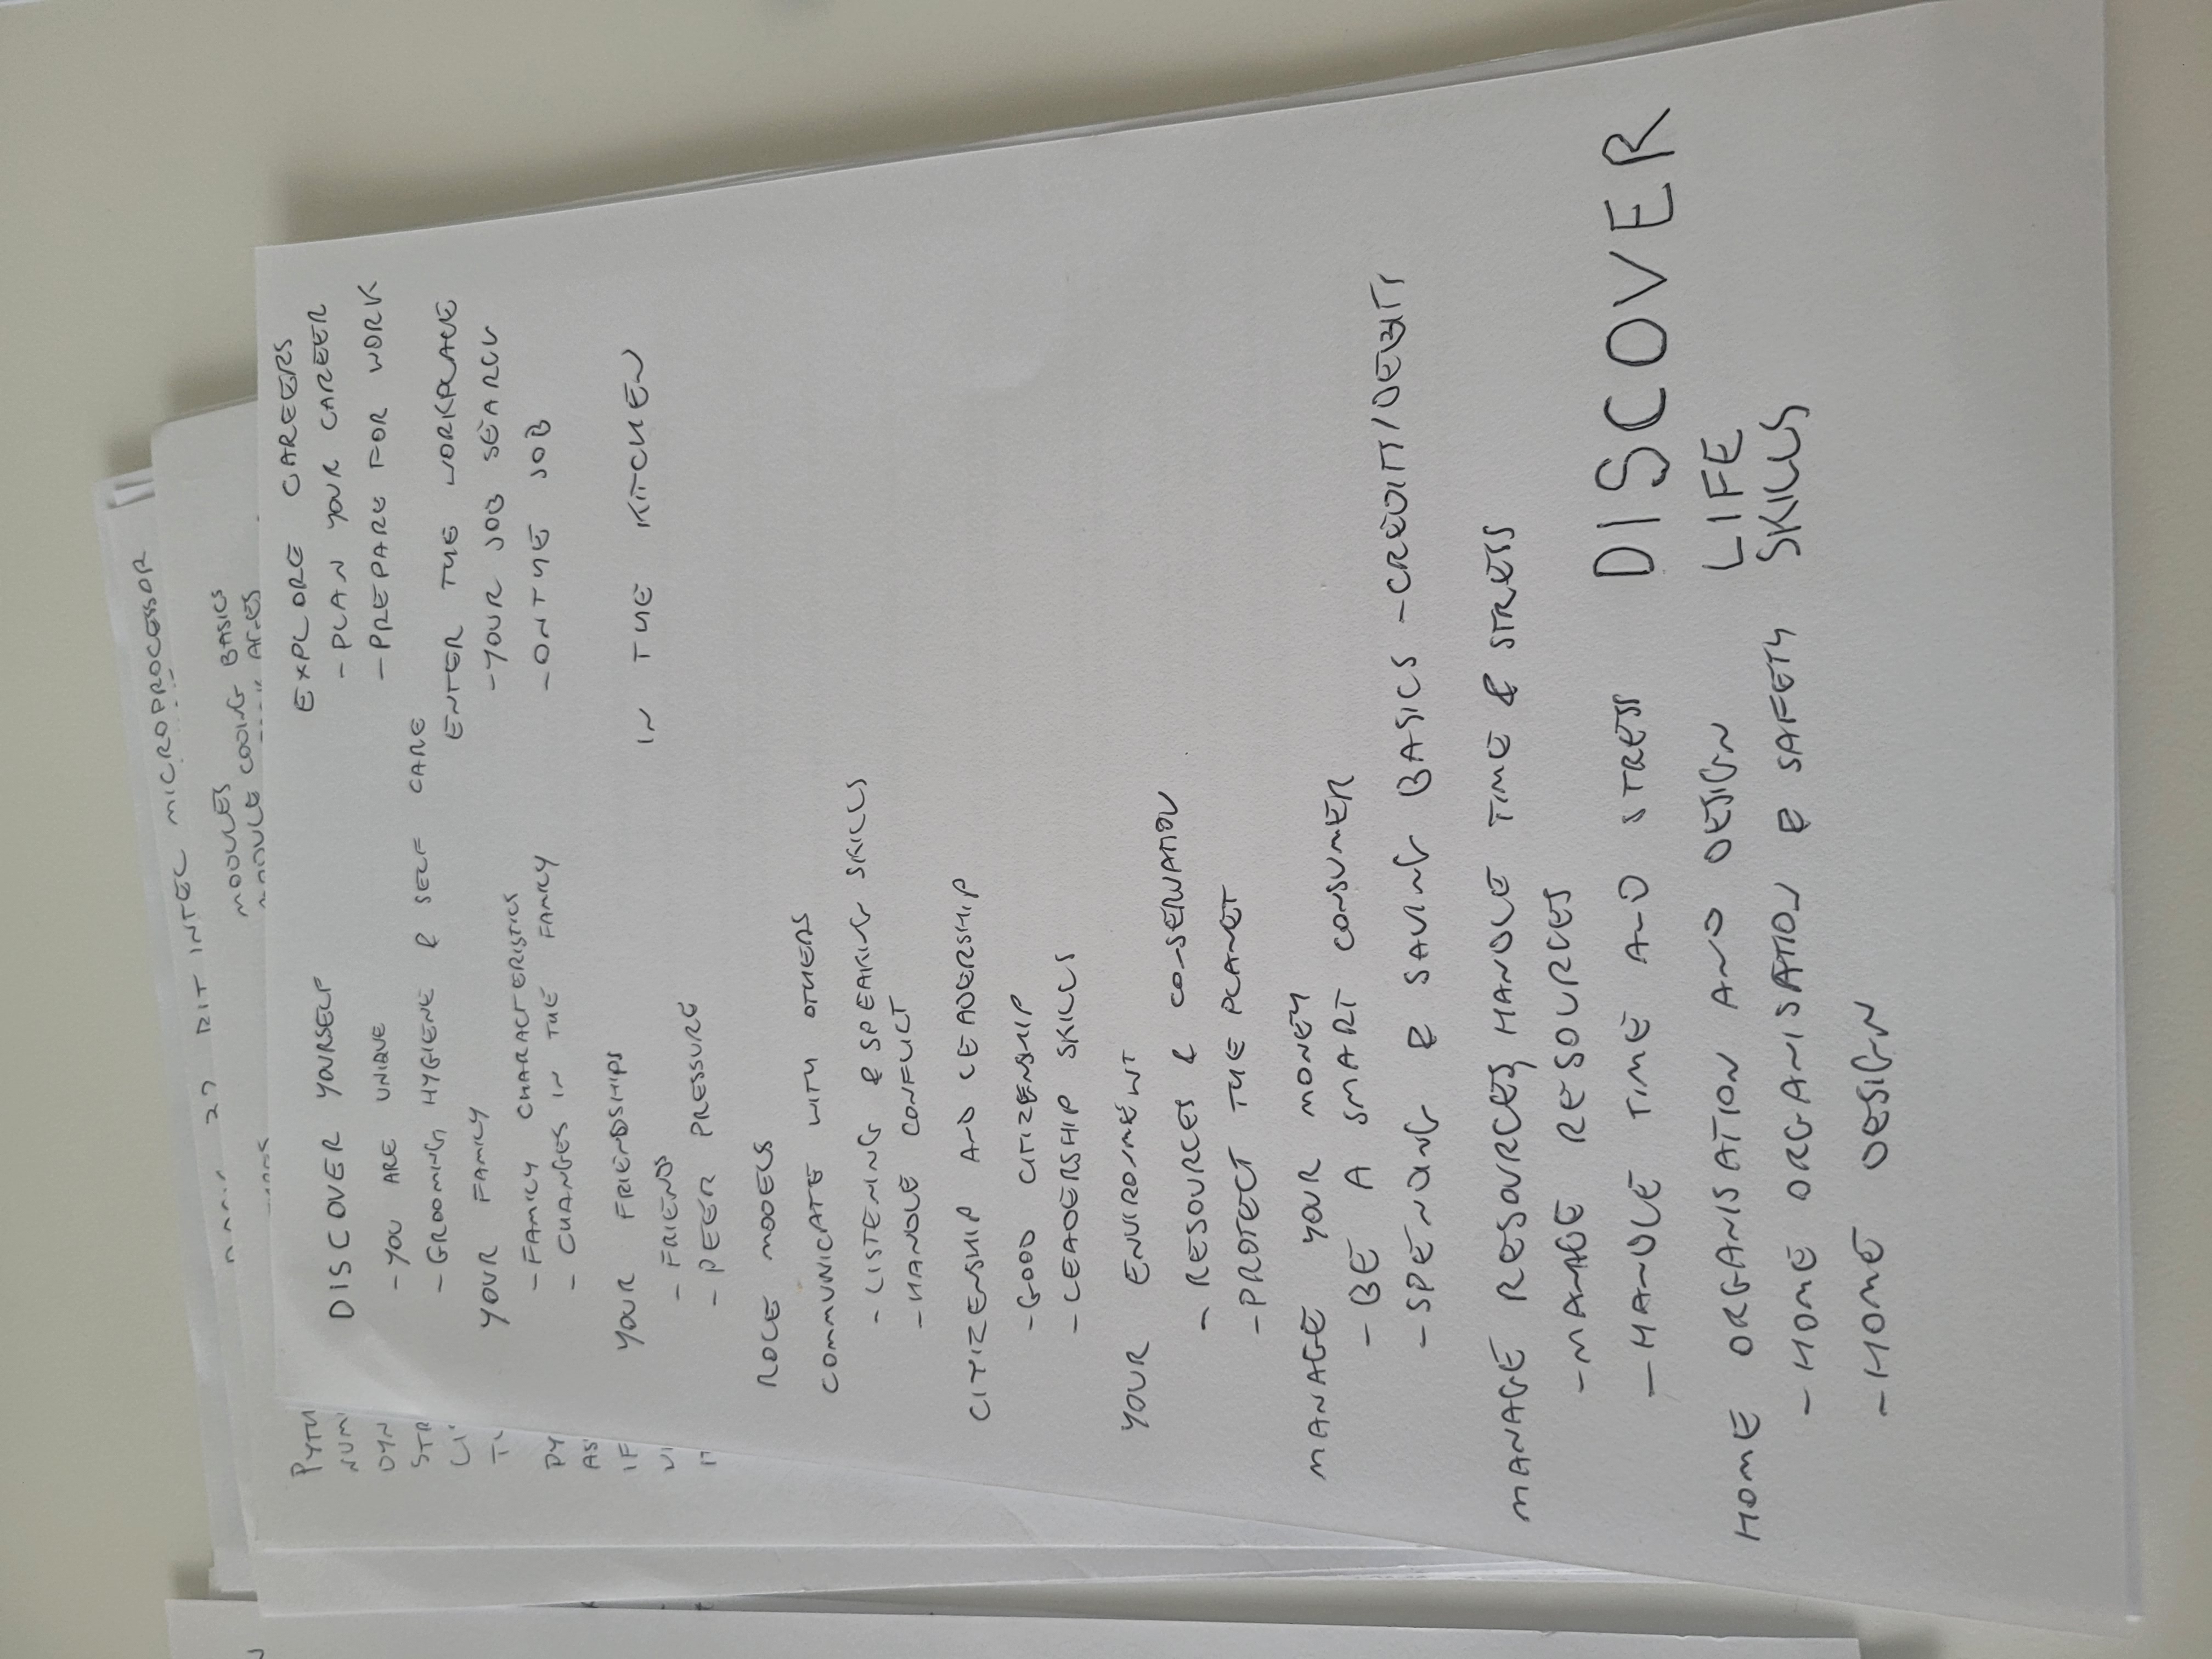 32 BIT INTEL MICROPROCESSOR
MODULES
MODULE CODING BASICS
DISCOVER YOURSELF
- YOU ARE UNIQUE
- GROOMING, HYGIENE & SELF CARE
YOUR FAMILY
- FAMILY CHARACTERISTICS
- CHANGES IN THE FAMILY
YOUR FRIENDSHIPS
- FRIENDS
- PEER PRESSURE
ROLE MODELS
COMMUNICATE WITH OTHERS
- LISTENING & SPEAKING SKILLS
- HANDLE CONFLICT
CITIZENSHIP AND LEADERSHIP
- GOOD CITIZENSHIP
- LEADERSHIP SKILLS
YOUR ENVIRONMENT
- RESOURCES & CONSERVATION
- PROTECT THE PLANET
MANAGE YOUR MONEY
- BE A SMART CONSUMER
- SPENDING & SAVING BASICS - CREDITS/DEBITS
MANAGE RESOURCES, HANDLE TIME & STRESS
- MANAGE RESOURCES
- HANDLE TIME AND STRESS
HOME ORGANISATION AND DESIGN
- HOME ORGANISATION & SAFETY
- HOME DESIGN
EXPLORE CAREERS
- PLAN YOUR CAREER
- PREPARE FOR WORK
ENTER THE WORKPLACE
- YOUR JOB SEARCH
- ON THE JOB
IN THE KITCHEN
DISCOVER
LIFE
SKILLS